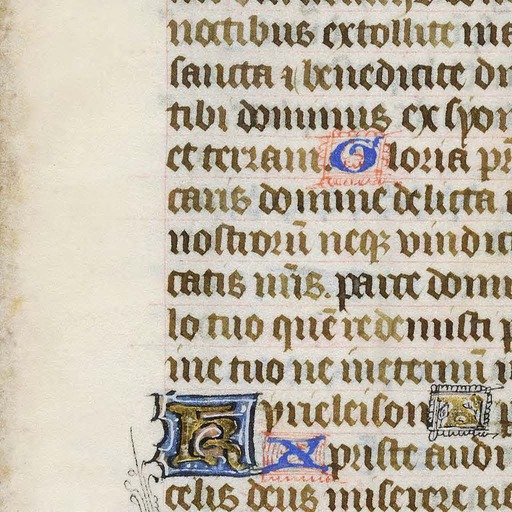 noctibus extollite ma
sancta ⁊ benedicite dn
tibi dominus ex syon
et terram. Gloria pr
caris domine delicta
nostrorū neqꝫ vindic
catis nr̄is. parce domi
lo tuo quē redemisti p
ine tuo ne in eternū i
Kyrieleison
Xpriste audi
celis deus miserere no